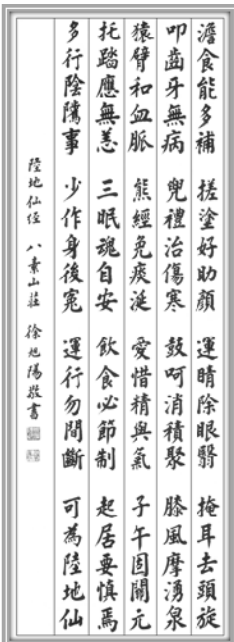 澹食能多補 搓塗好助顏 運睛除眼翳 掩耳去頭旋
叩齒牙無病 兜禮治傷寒 鼓呵消積聚 膝風摩湧泉
猿臂和血脈 熊經免痰涎 愛惜精與氣 子午固關元
托踏應無恙 三眠魂自安 飲食必節制 起居要慎焉
多行陰騭事 少作身後冤 運行勿間斷 可為陸地仙
陸地仙經 八素山莊 徐旭陽敬書